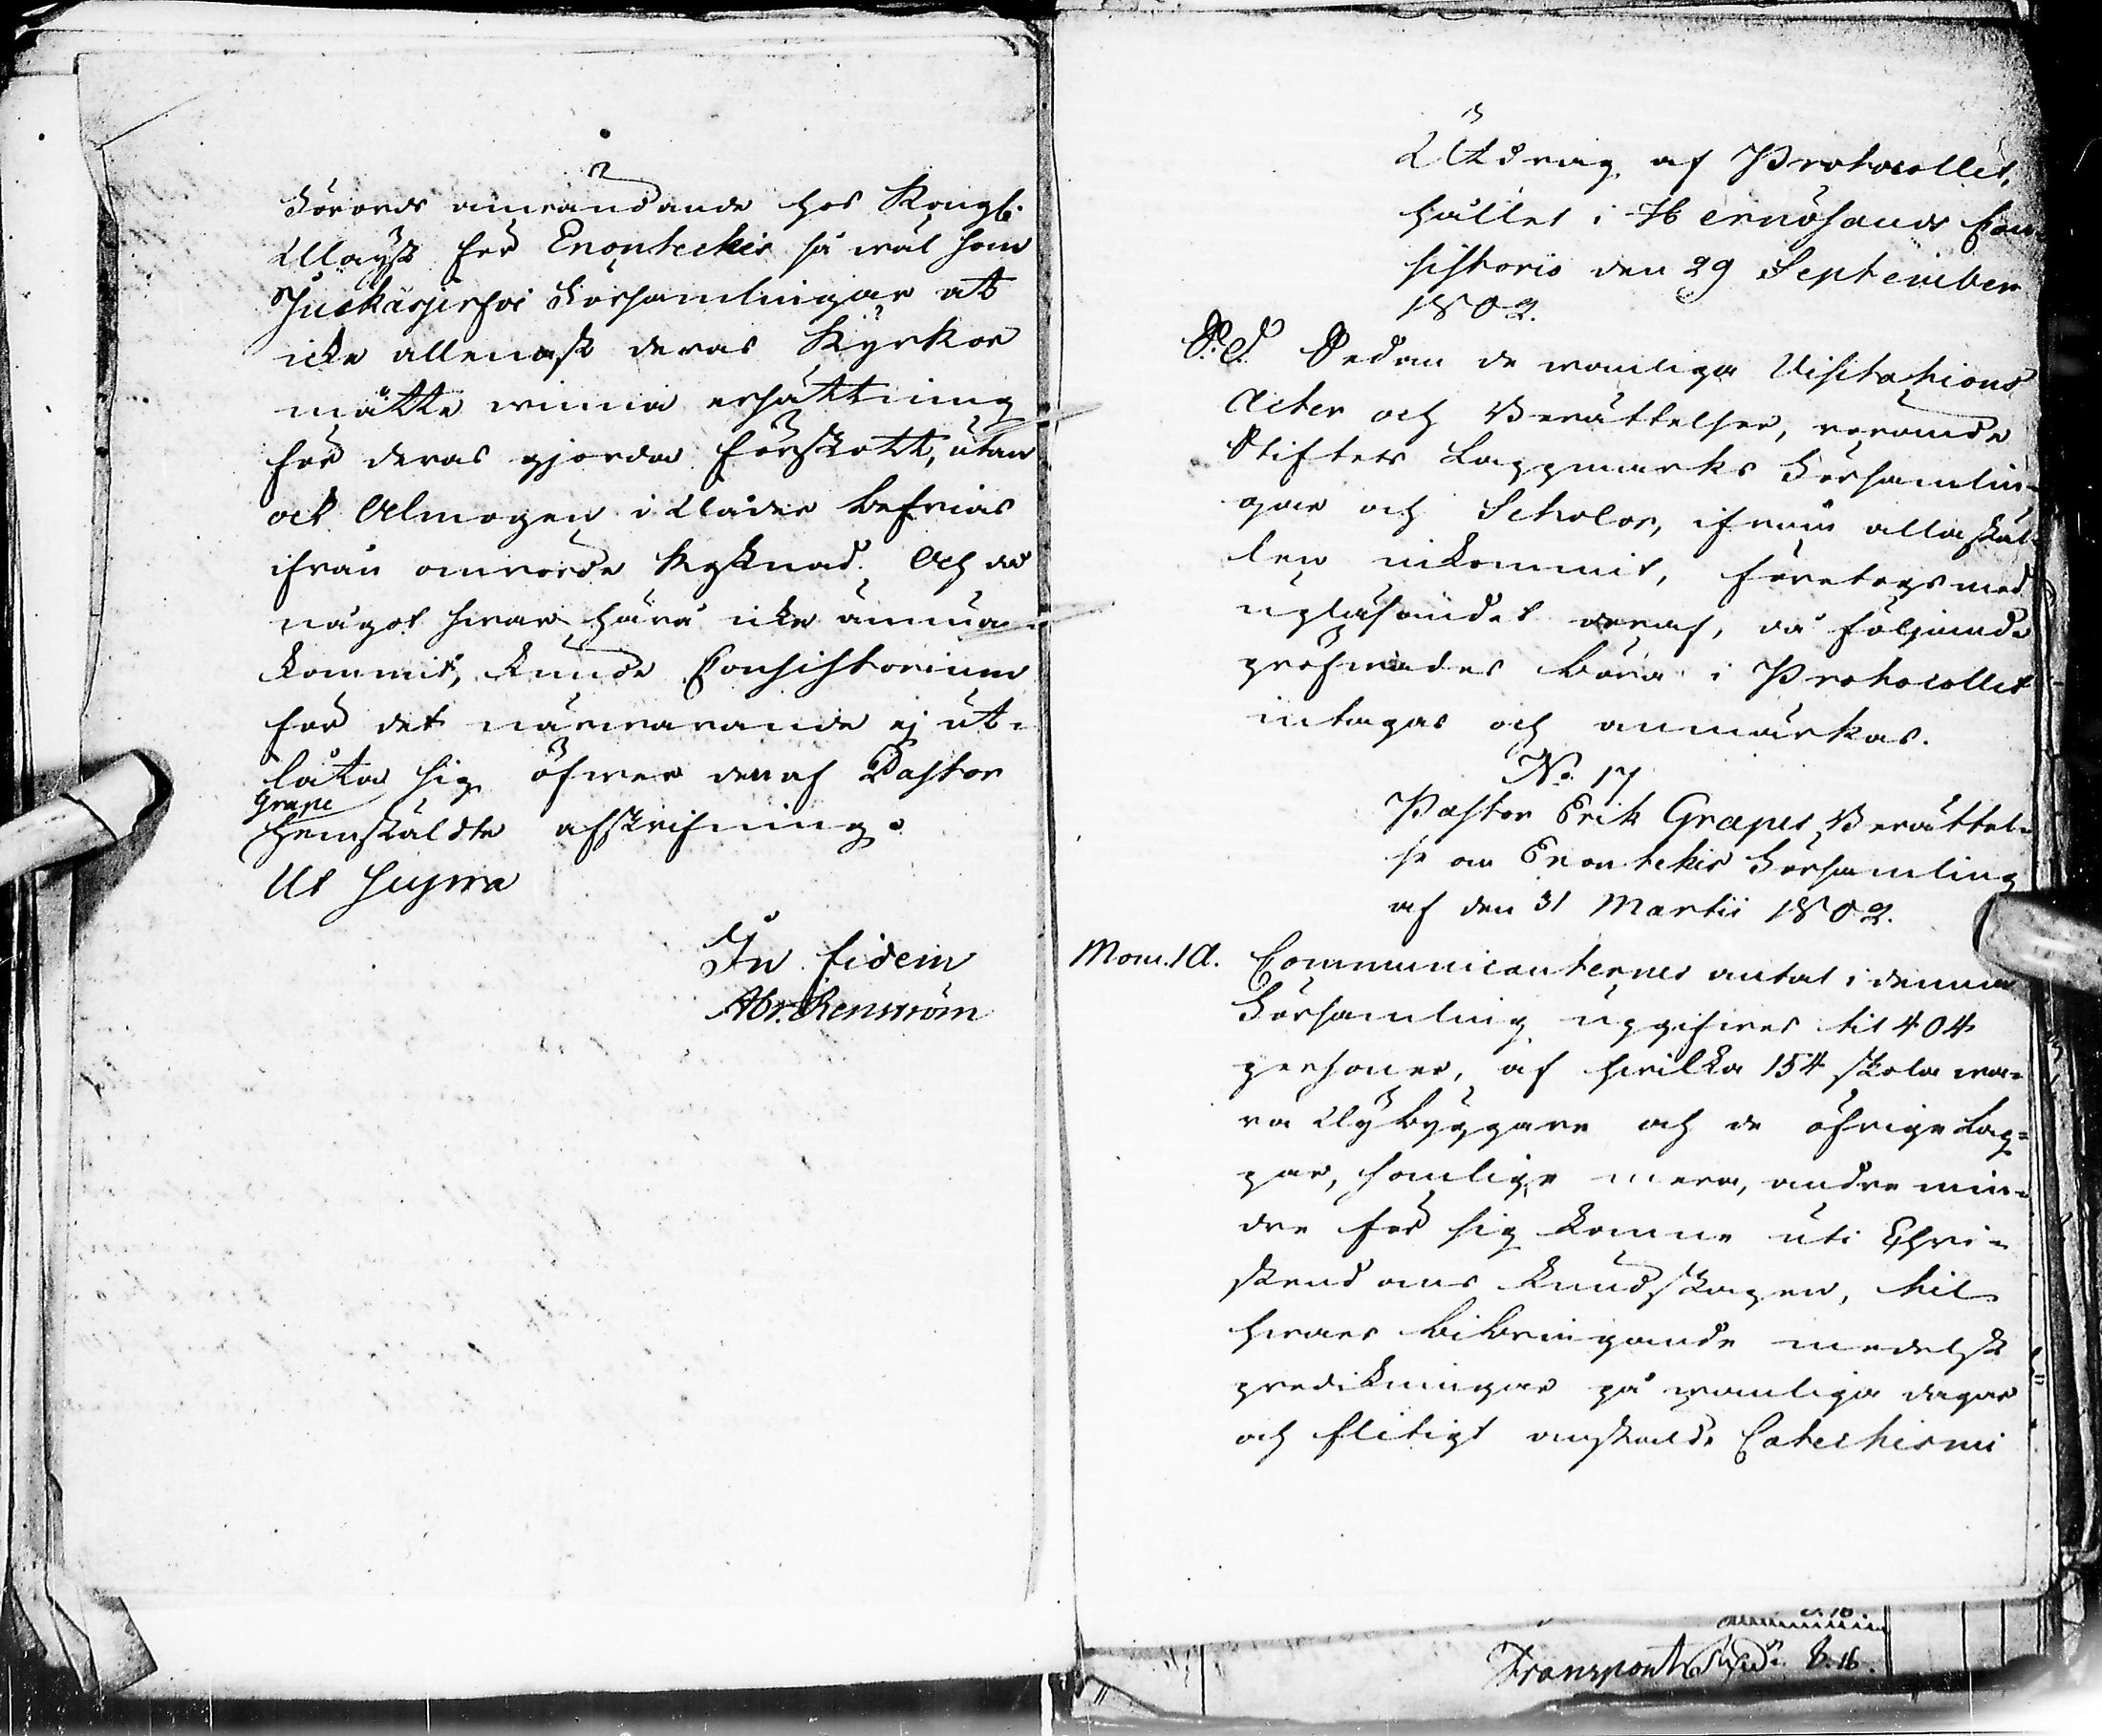 Förords användande hos Kongl.
Mayst för Enontekis så wäl som
Juckasjerfvi Församlingar at
icke allenast deras Kyrkor
måtte winna ersättning
för deras gjorda förskott, utan
ock Almogen i Nåder befrias
ifrån omrörde kostnad. Och då
något svar härå icke ännu an-
kommit, kunde Consistorium
för det närvarande ej ut-
låta sig öfwer den af Pastor
Grape
hemstäldte afskrifning.
Ut supra
In fidem
Abr. Renström
Utdrag af Protocollet,
hållet i Hernösands Con-
sistorio den 29 September
1802.
S. D. Sedan de wanliga Visitations
Acter och Berättelser, rörande
Stiftets Lappmarks Församlin-
gar och Scholor, ifrån alla stäl-
len inkommit, företogs med
uplåsandet deraf, då följande
pröfwades böra i Protocollet
intagas och anmärkas.
No. 17
Pastor Erik Grapes Berättel-
se om Enontekis Församling
af den 31 Martii 1802.
Mom. 1 A. Communicanternes antal i denna
Församling uppgifwes til 404
personer, af hwilka 154 skola wa-
ra Nybyggare och de öfrige Lap-
par, somlige mera, andre min-
dre för sig komne uti Chri-
stendoms kundskapen, til
hwars bibringande medelst
predikningar på wanliga dagar
och flitigt anstälde Catechismi
Transport 8. 16.